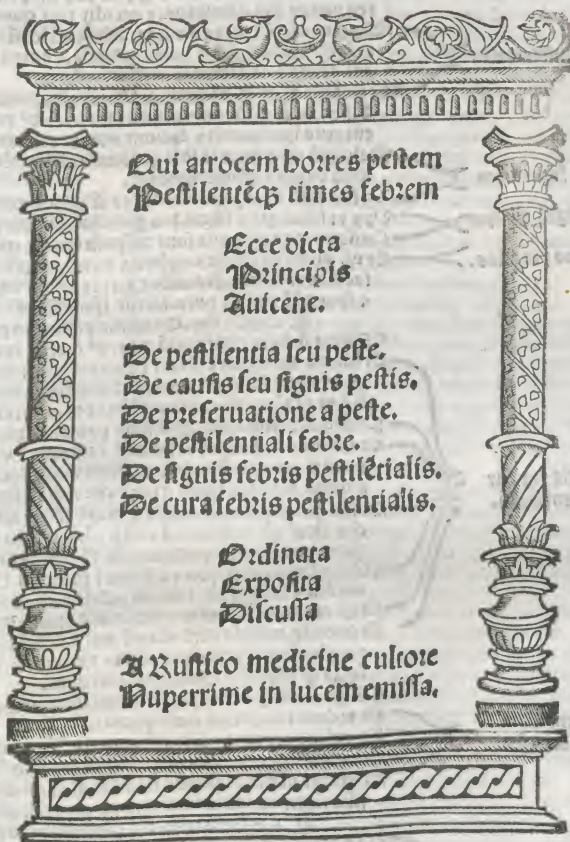 Qui atrocem horres pestem
Pestilentēqꝫ times febrem
Ecce dicta
Principis
Auicene.
De pestilentia seu peste.
De causis seu signis pestis.
De preseruatione a peste.
De pestilentiali febre.
De signis febris pestilētialis.
De cura febris pestilentialis.
Ordinata
Exposita
Discussa
A Rustico medicine cultore
Nuperrime in lucem emissa.